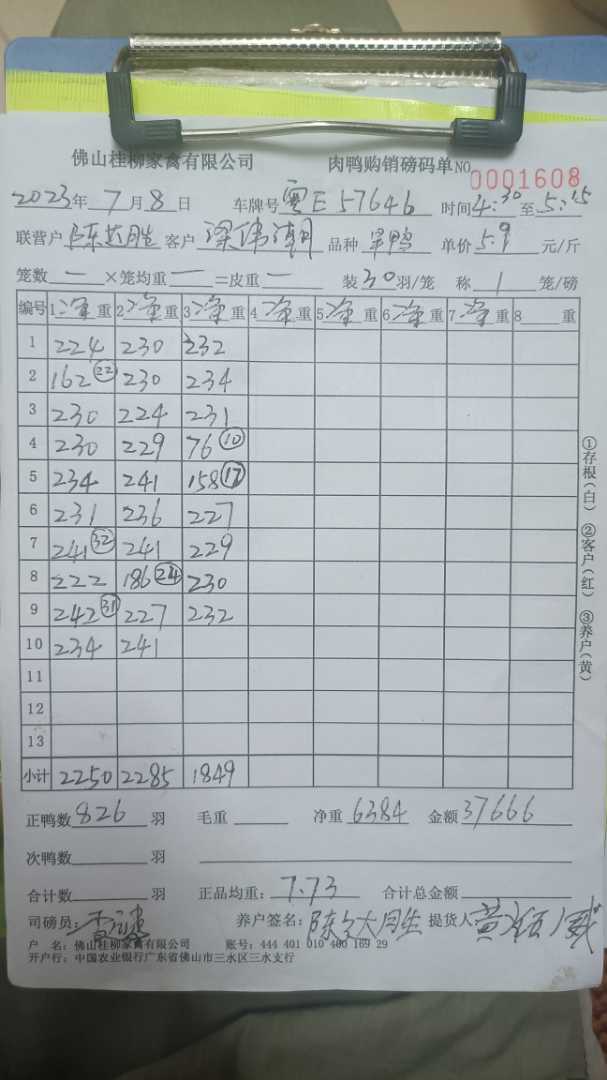 佛山桂柳家禽有限公司 肉鸭购销磅码单 NO 0001608
2023年 7月 8日 车牌号 粤E57646 时间 4:30 至 5:15
联营户 陈达胜 客户 梁伟潮 品种 旱鸭 单价 5.9 元/斤
笼数 一 ×笼均重 一 =皮重 一 装30羽/笼 称 1 笼/磅
编号 1净重 2净重 3净重 4净重 5净重 6净重 7净重 8 重
1 224 230 232
2 162(22) 230 234
3 230 224 231
4 230 229 76(10)
5 234 241 158(17)
6 231 236 227
7 241(32) 241 229
8 222 186(24) 230
9 242(31) 227 232
10 234 241
11
12
13
小计 2250 2285 1849
①存根(白) ②客户(红) ③养户(黄)
正鸭数 826 羽 毛重 净重 6384 金额 37666
次鸭数 羽
合计数 羽 正品均重: 7.73 合计总金额
司磅员: 养户签名: 提货人
户 名: 佛山桂柳家禽有限公司 账号: 444 401 010 400 169 29
开户行: 中国农业银行广东省佛山市三水区三水支行